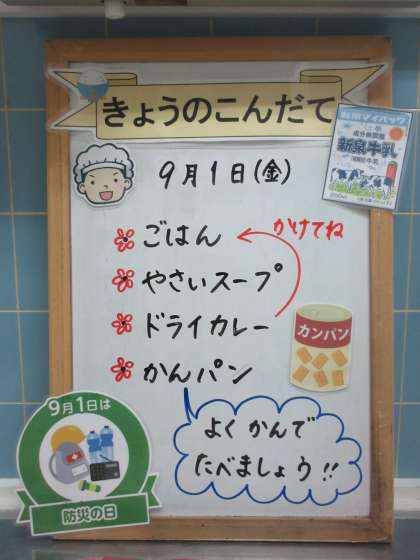 きょうのこんだて
9月1日(金)
ごはん
かけてね
やさいスープ
ドライカレー
かんパン
よくかんで
たべましょう!!
カンパン
新泉牛乳
9月1日は
防災の日